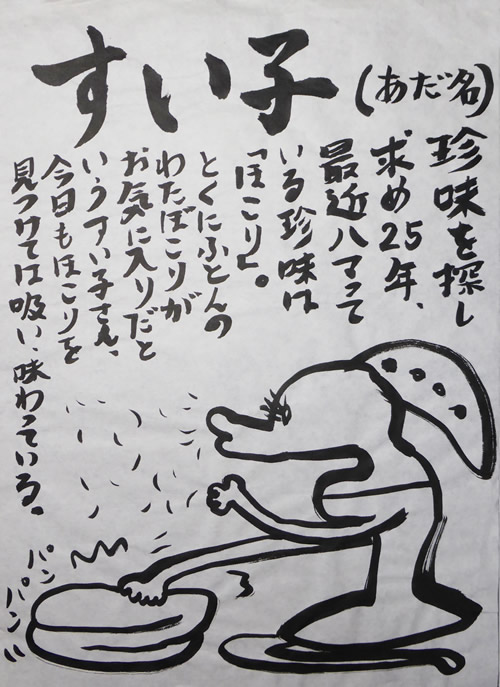 すい子
(あだ名)
珍味を探し
求め25年、
最近ハマって
いる珍味は
「ほこり」。
とくにふとんの
わたぼこりが
お気に入りだと
いうすい子さん、
今日もほこりを
見つけては吸い、味わっている。
パン
パン